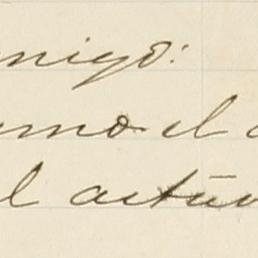 migo:
amo el
el actua